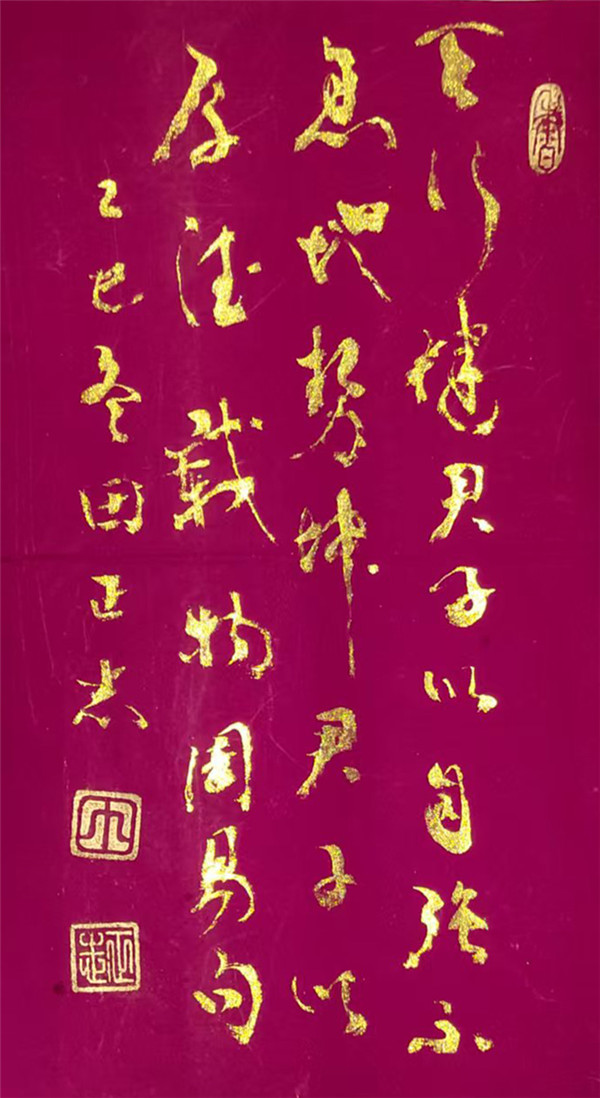 天行健君子以自强不
息地势坤君子以
厚德载物周易句
乙巳冬田正志
正志